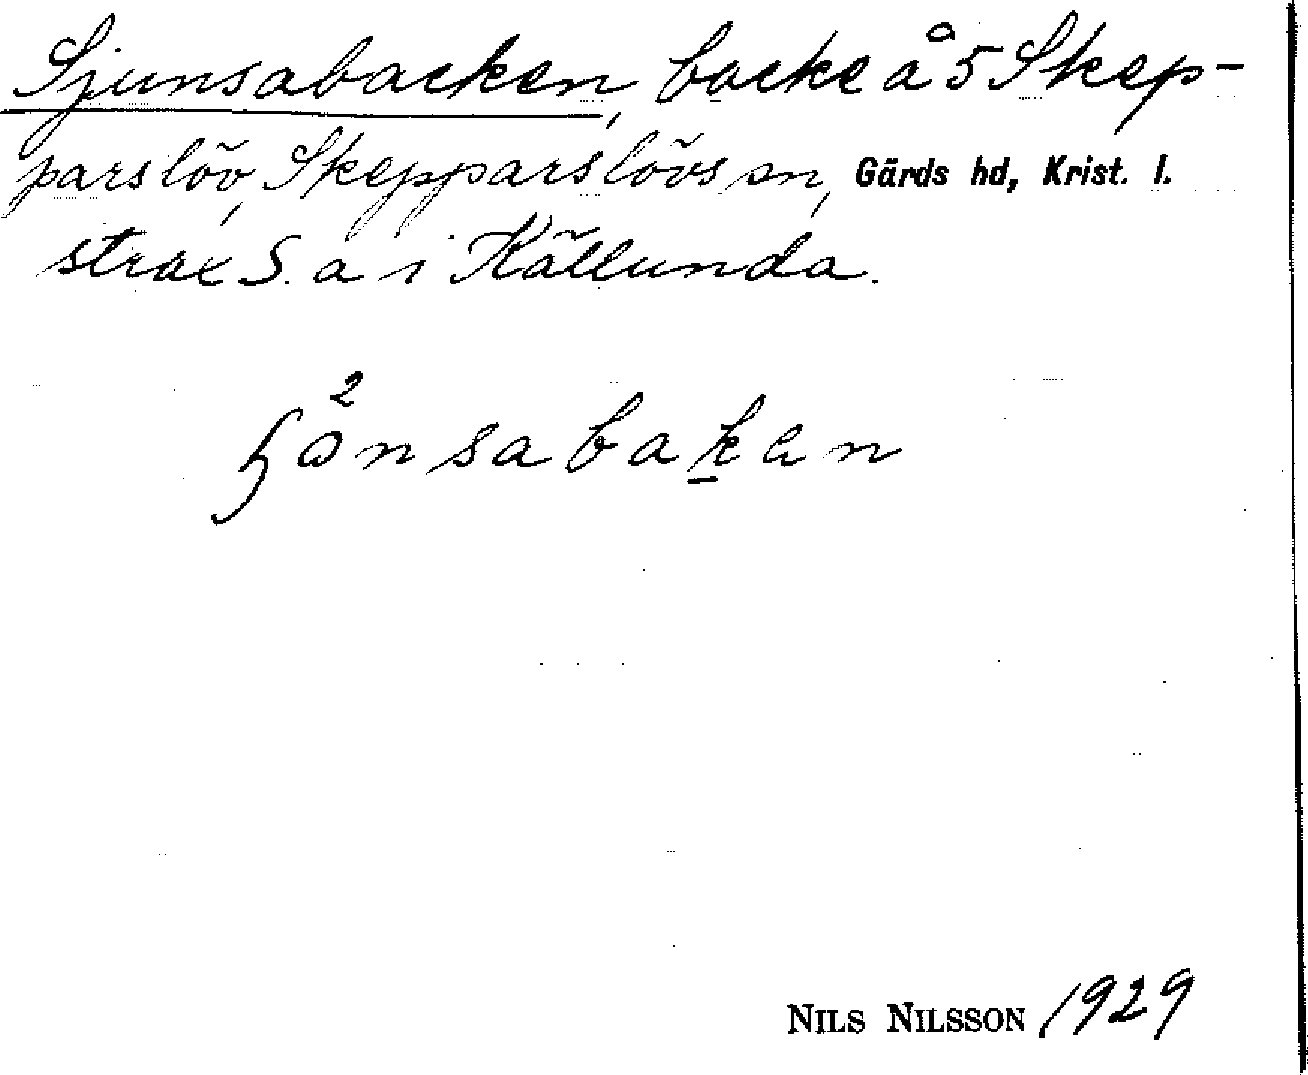 Sjunsabacken, backe å 5 Skep-
parslöv, Skepparslövs sn, Gärds hd, Krist. l.
strax S. a i Källunda.
2
ɧɷnsabaken
NILS NILSSON 1929